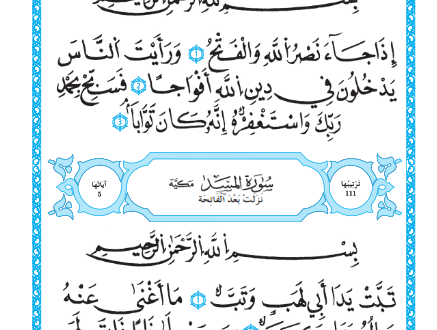 بِسْمِ اللَّهِ الرَّحْمَٰنِ الرَّحِيمِ
إِذَا جَآءَ نَصْرُ اللَّهِ وَالْفَتْحُ 1 وَرَأَيْتَ النَّاسَ
يَدْخُلُونَ فِي دِينِ اللَّهِ أَفْوَاجًا 2 فَسَبِّحْ بِحَمْدِ
رَبِّكَ وَاسْتَغْفِرْهُ إِنَّهُ كَانَ تَوَّابًا 3
تَرْتِيبُهَا 111
سُورَةُ الْمَسَدِ مَكِّيَّة
نَزَلَتْ بَعْدَ الْفَاتِحَة
آيَاتُهَا 5
بِسْمِ اللَّهِ الرَّحْمَٰنِ الرَّحِيمِ
تَبَّتْ يَدَا أَبِي لَهَبٍ وَتَبَّ 1 مَا أَغْنَىٰ عَنْهُ